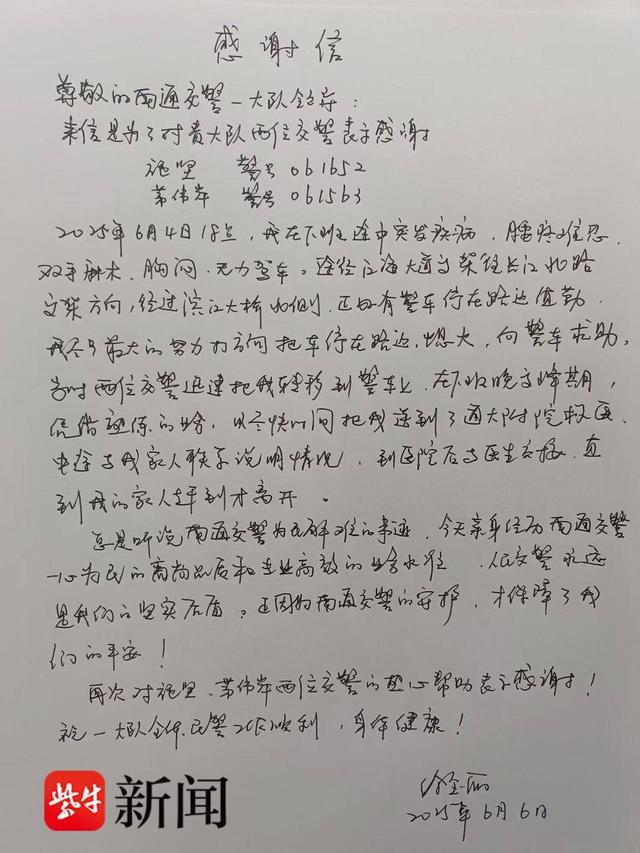 感谢信
尊敬的南通交警一大队领导：
来信是为了对贵大队两位交警表示感谢
施坚 警号 061652
茅伟岸 警号 061563
2025年6月4日18点，我在下班途中突发疾病，腰疼难忍、
双手麻木、胸闷、无力驾车。途经江海大道高架往长江北路
高架方向，经过滨江大桥北侧，正好有警车停在路边值勤。
我尽了最大的努力方向把车停在路边、熄火，向警车求助。
当时两位交警迅速把我转移到警车上，在下班晚高峰期，
凭借熟练的业务，以尽快时间把我送到了通大附院救医，
中途与我家人联系说明情况，到医院后与医生交接，直
到我的家人赶到才离开。
总是听说南通交警为民解难的事迹，今天亲身经历南通交警
一心为民的高尚品质和专业高效的业务水位，人民交警永远
是我们的坚实后盾。正因为南通交警的守护，才保障了我
们的平安！
再次对施坚、茅伟岸两位交警的热心帮助表示感谢！
祝一大队全体民警工作顺利，身体健康！
2025年6月6日
紫牛新闻